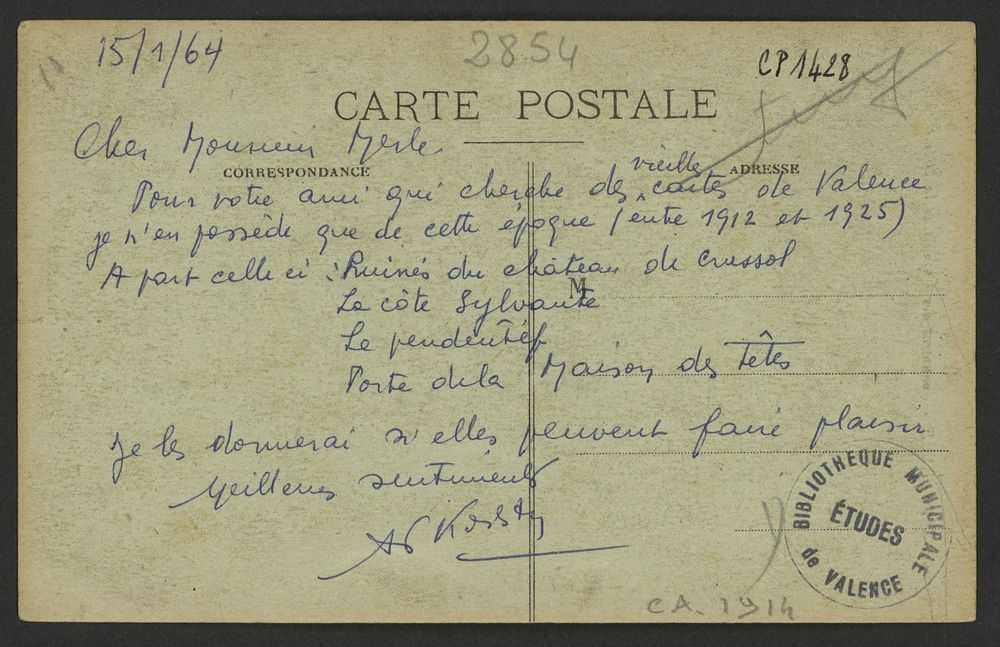 15/1/64
2854
CP1428
CARTE POSTALE
Cher Monsieur Merle
CORRESPONDANCE
ADRESSE
Pour votre ami qui cherche des vieilles cartes de Valence
je n'en possède que de cette époque (entre 1912 et 1925)
A part celle ci : Ruines du château de Crussol
M
La côte Sylvante
Le pendentif
Porte de la Maison des Têtes
Je les donnerai si elles peuvent faire plaisir
Meilleurs sentiments
BIBLIOTHEQUE MUNICIPALE
ÉTUDES
de VALENCE
CA. 1914